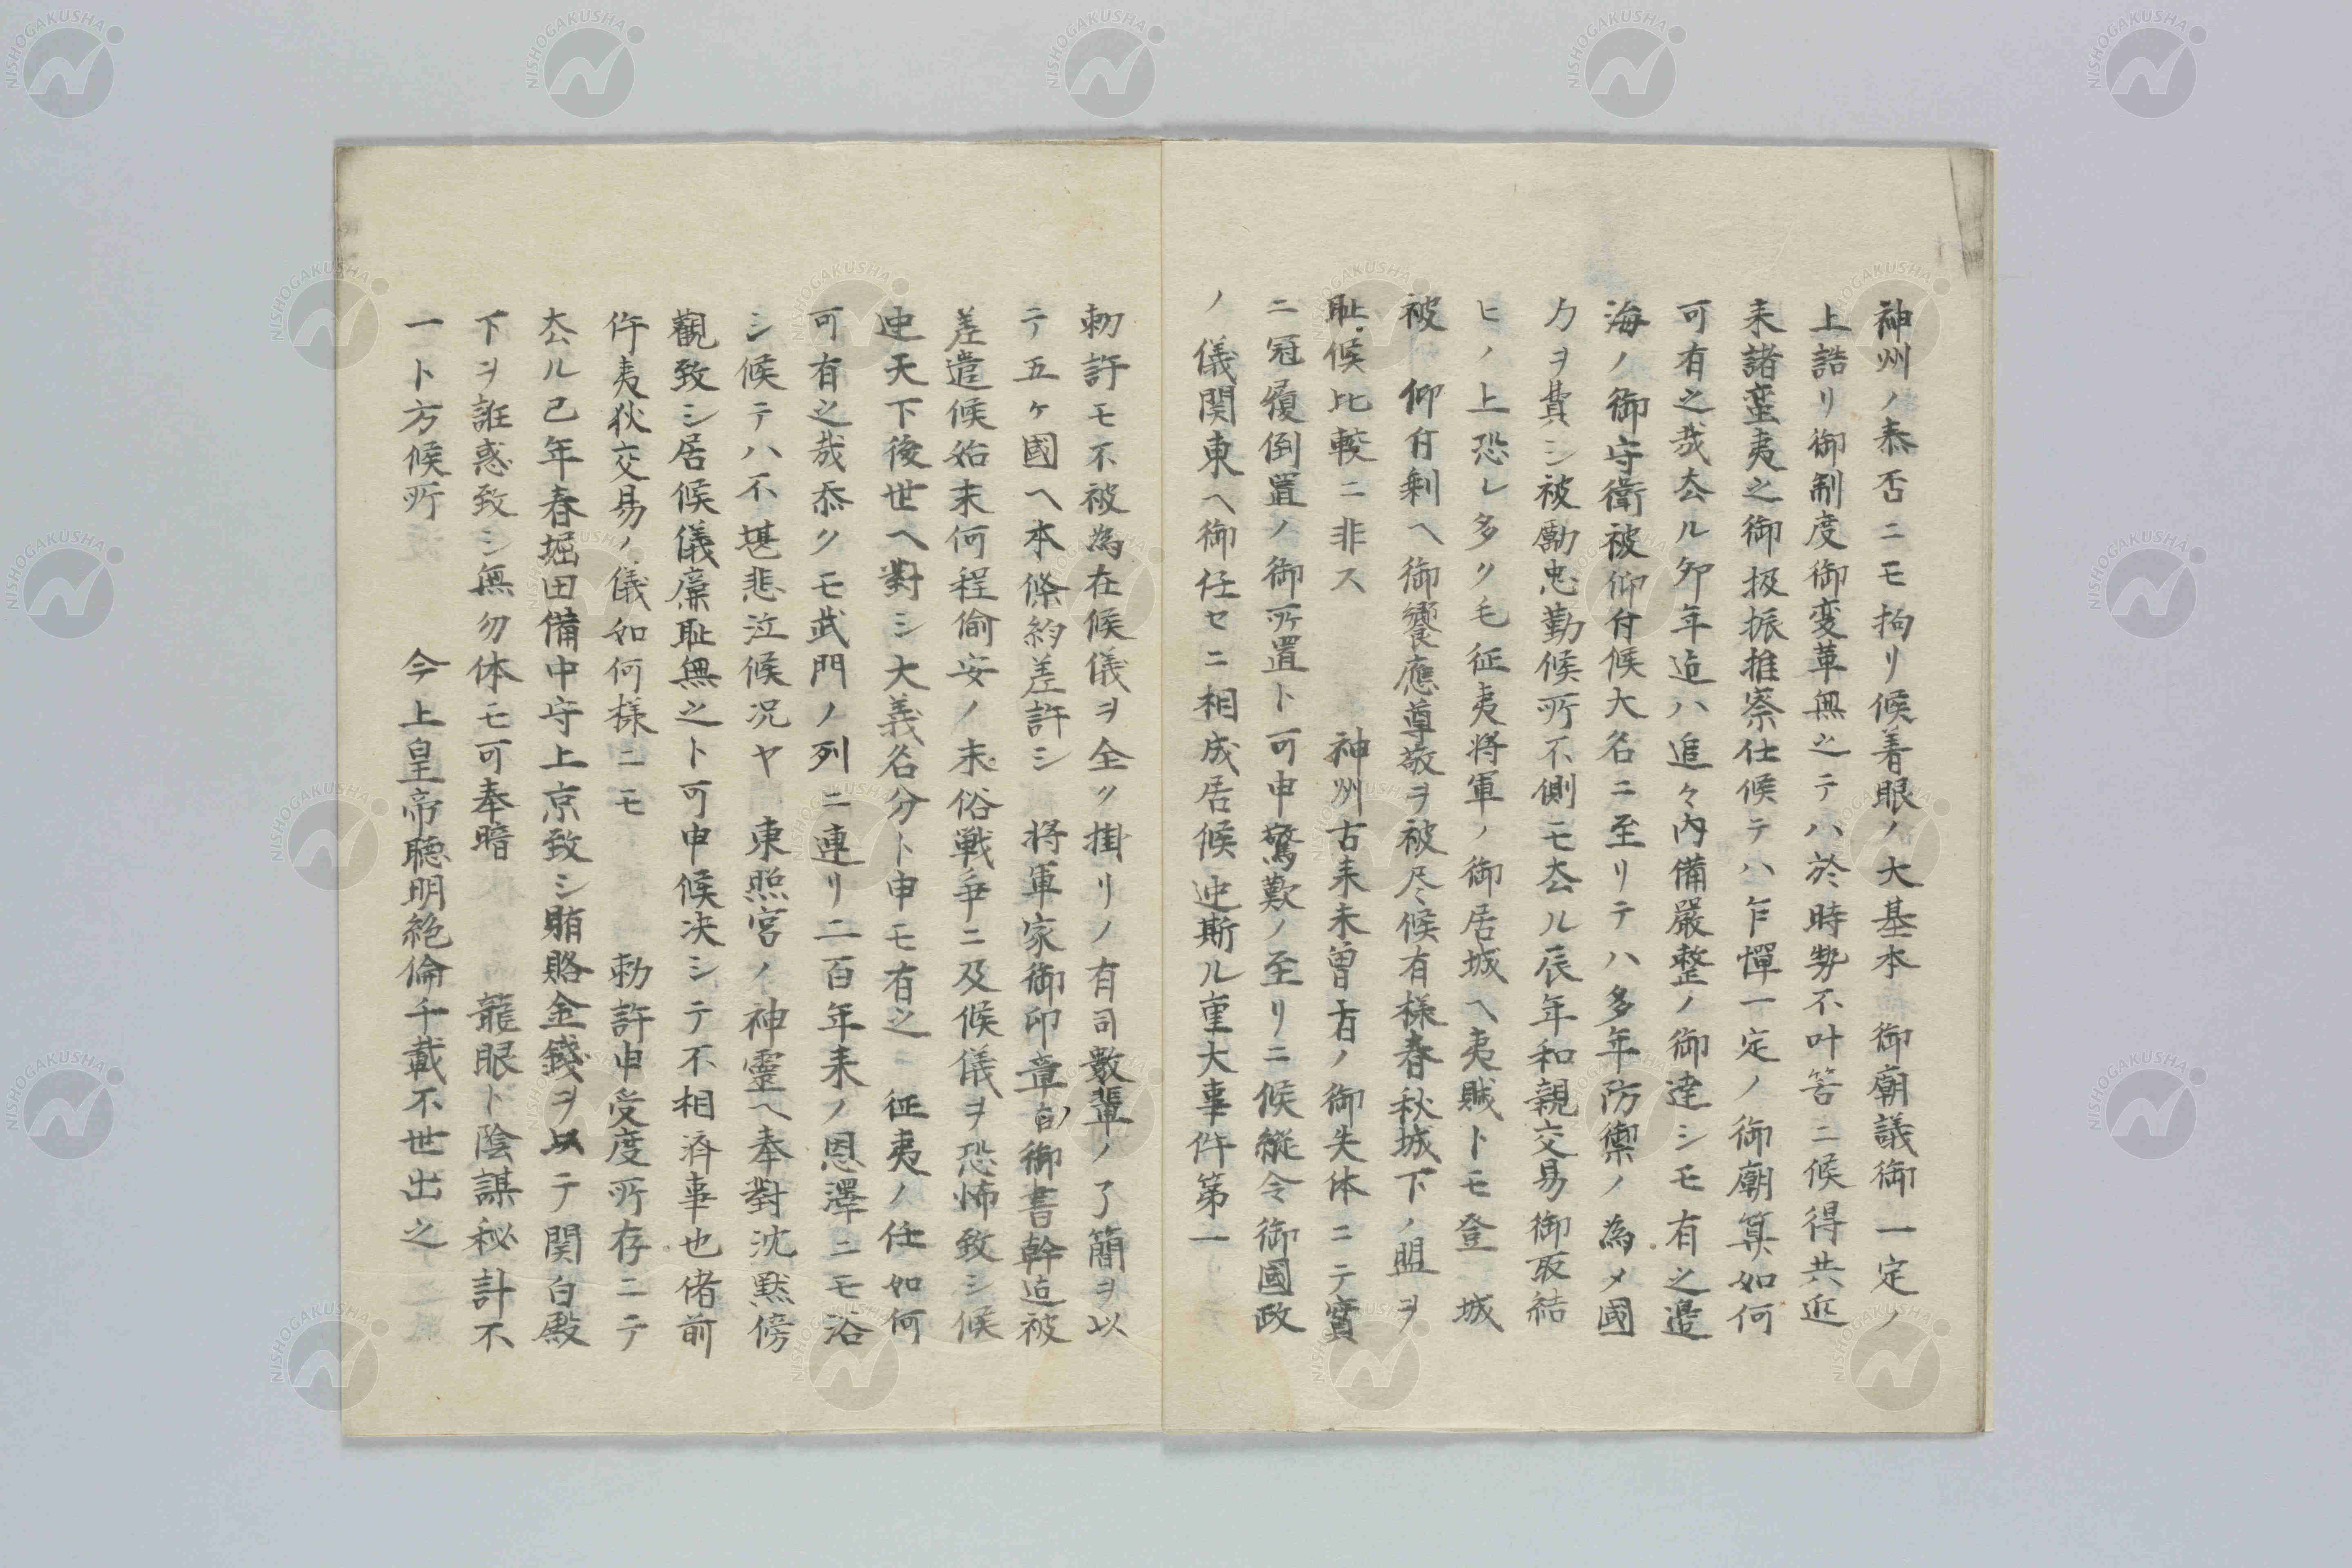 神州ノ泰否ニモ拘リ候着眼ノ大基本 御廟議御一定ノ
上誥リ御制度御変革無之テハ於時勢不叶筈ニ候得共近
来諸蛮夷之御扱振推察仕候テハ乍憚一定ノ御廟算如何
可有之哉去ル夘年迠ハ追々内備嚴整ノ御達シモ有之邉
海ノ御守衛被仰付候大名ニ至リテハ多年防禦ノ為メ國
力ヲ費シ被勵忠勤候所不側モ去ル辰年和親交易御取結
ヒノ上恐レ多クモ征夷将軍ノ御居城ヘ夷賊トモ登城
被 仰付剰ヘ御饗應尊敬ヲ被尽候有様春秋城下ノ盟ヲ
耻候比較ニ非ス 神州古来未曽有ノ御失体ニテ實
ニ冠履倒置ノ御所置ト可申驚歎ノ至リニ候縦令御國政
ノ儀関東ヘ御任セニ相成居候迚斯ル重大事件第一
勅許モ不被為在候儀ヲ全ク掛リノ有司數輩ノ了簡ヲ以
テ五ケ國ヘ本條約差許シ 将軍家御印章ノ御書幹迠被
差遣候始末何程偷安ノ末俗戦争ニ及候儀ヲ恐怖致シ候
迚天下後世ヘ對シ大義名分ト申モ有之 征夷ノ任如何
可有之哉忝クモ武門ノ列ニ連リ二百年来ノ恩澤ニモ浴
シ候テハ不堪悲泣候况ヤ 東照宮ノ神靈ヘ奉對沈黙傍
觀致シ居候儀廉耻無之ト可申候决シテ不相済事也偖前
件夷狄交易ノ儀如何様ニモ 勅許申受度所存ニテ
去ル己年春堀田備中守上京致シ賄賂金錢ヲ以テ関白殿
下ヲ誑惑致シ無勿体モ可奉暗 龍眼ト陰謀秘計不
一ト方候所 今上皇帝聴明絶倫千載不世出之
NISHOGAKUSHA